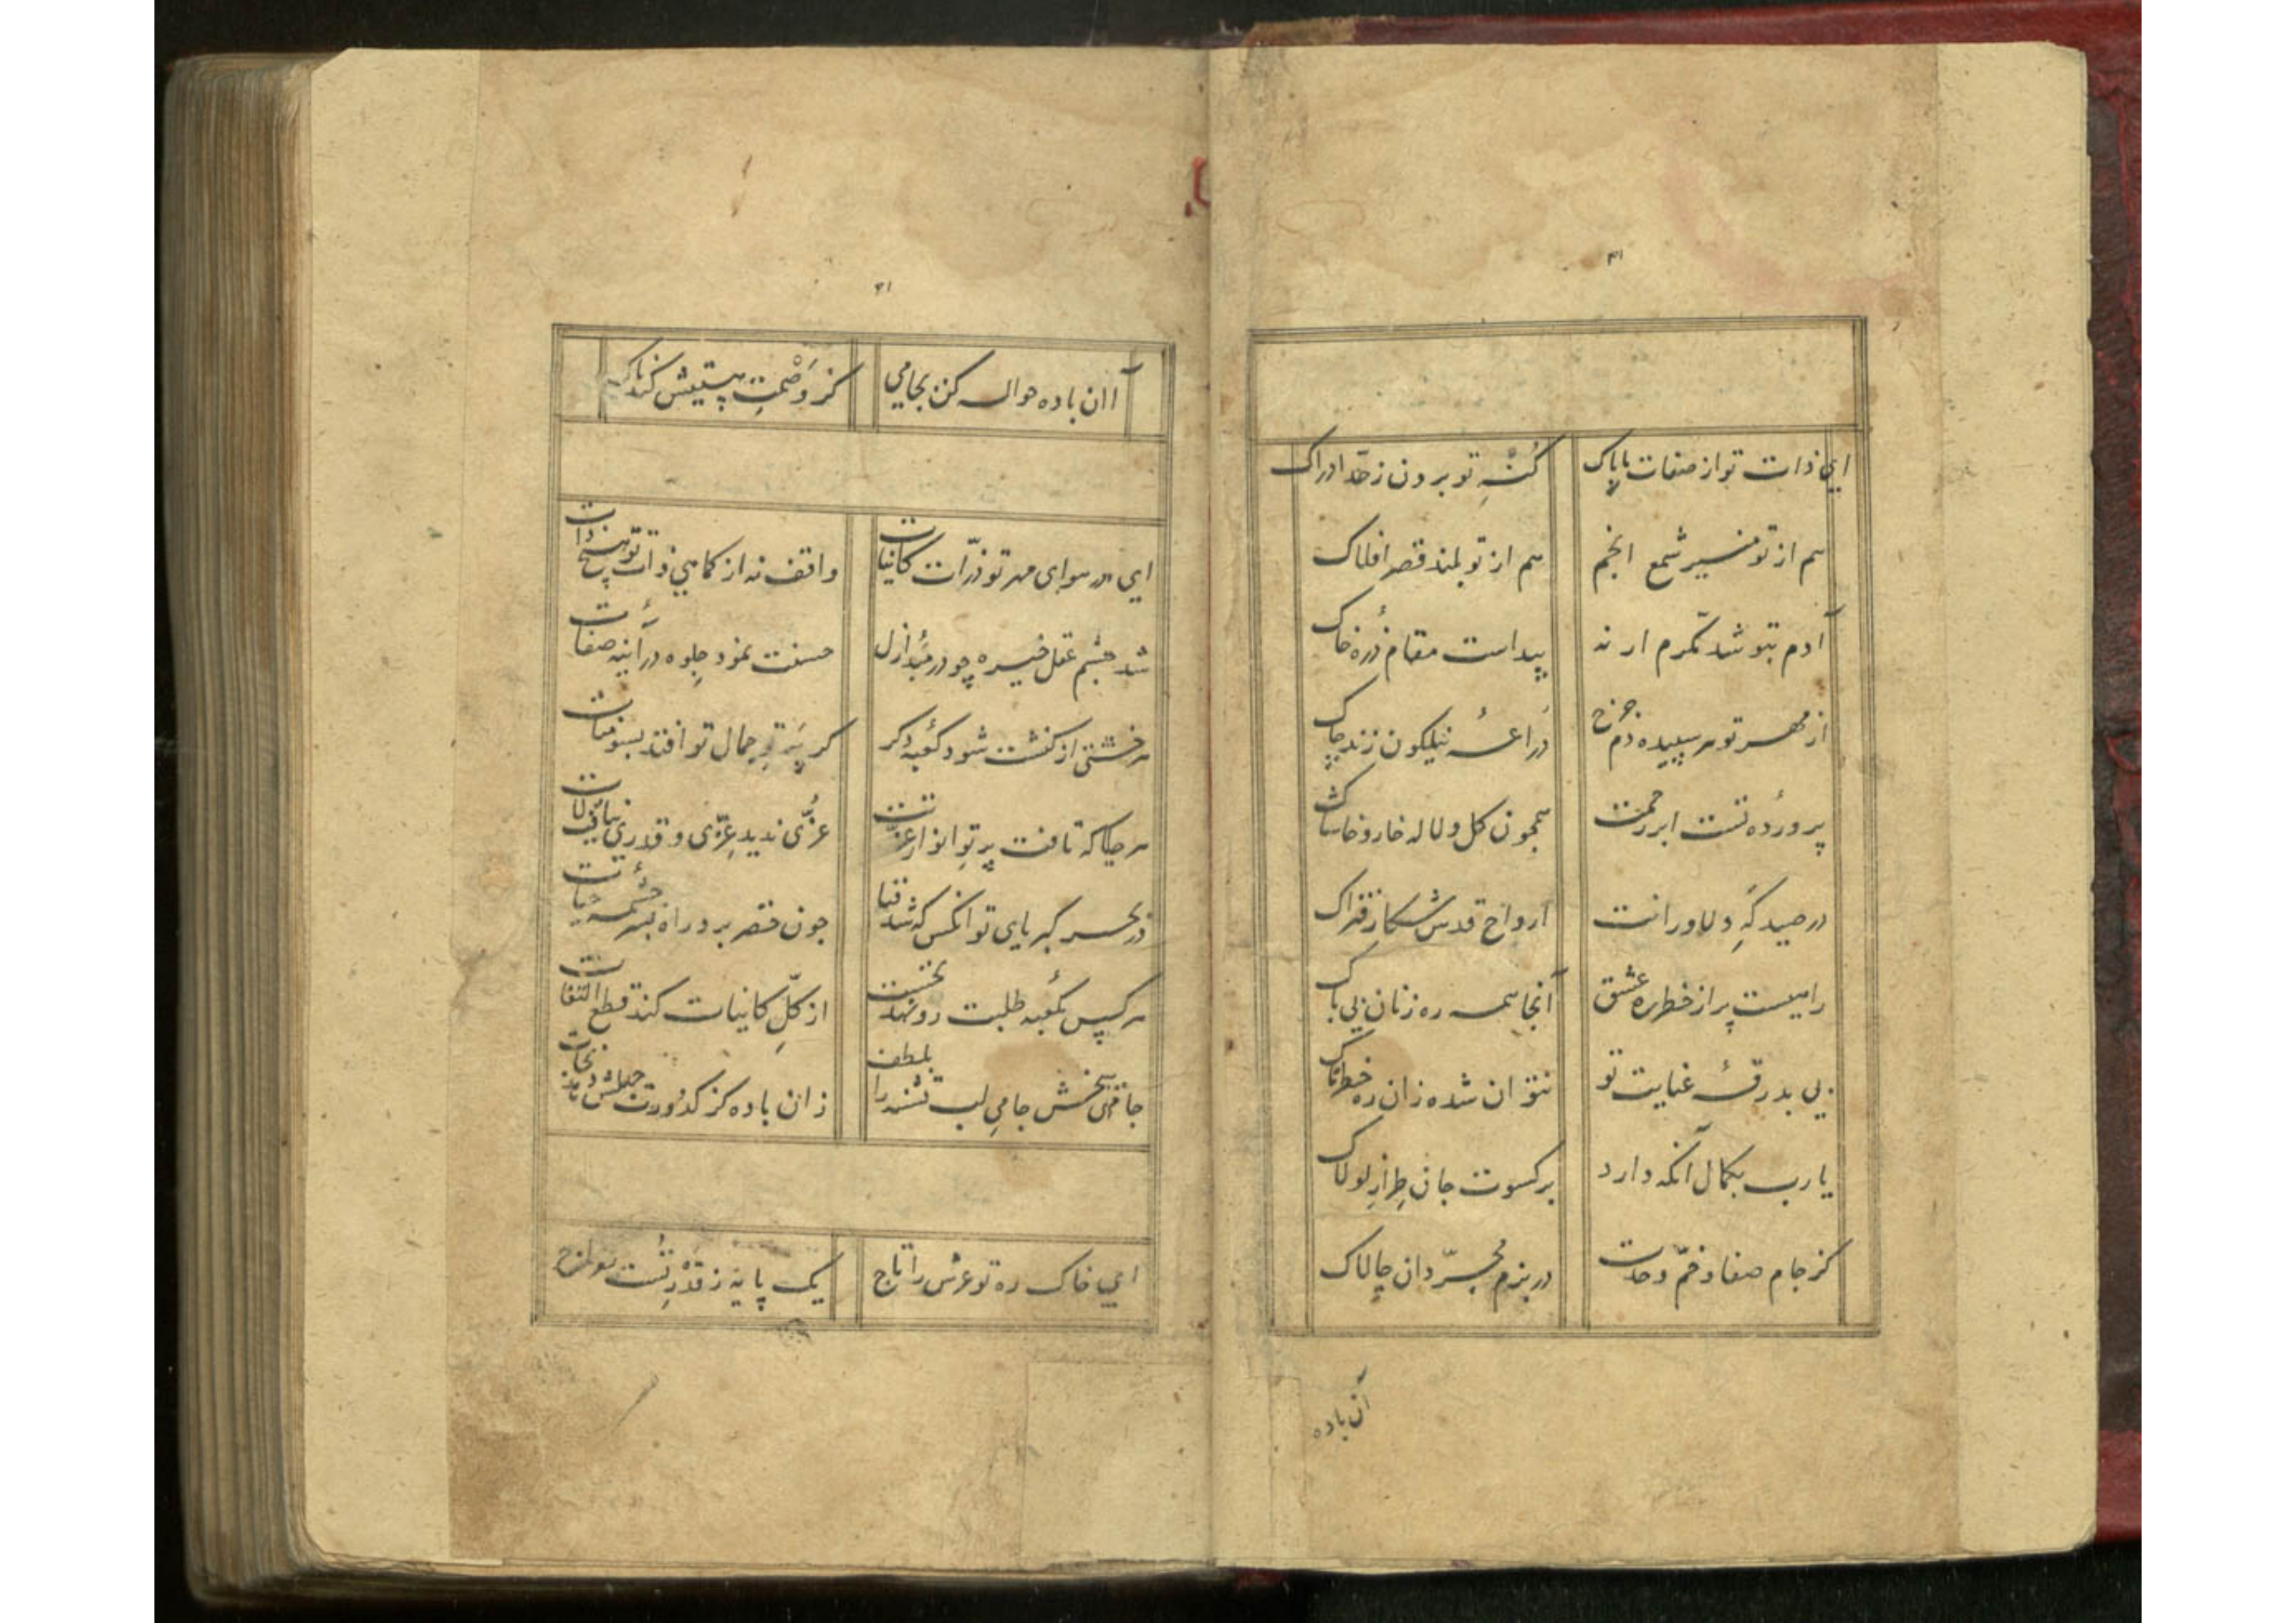 ای ذات تو از صفات ما پاک کنه تو برون ز حد ادراک
هم از تو منیر شمع انجم هم از تو بلند قصر افلاک
آدم بتو شد مکرم ار نه پیداست مقام ذره خاک
از مهر تو هر سپیده دم چرخ دراعه نیلکون زند چاک
پرورده تست ابر رحمت همچون کل و لاله خار و خاشاک
در صیدکه دلاورانت ارواح قدس شکار فتراک
راهیست پر از خطر ره عشق آنجا همه ره زنان بی باک
بی بدرقه عنایت تو نتوان شدن زان ره خطرناک
یا رب بکمال آنکه دارد بر کسوت جان طراز لولاک
کز جام صفا و خم وحدت در بزم مجردان چالاک
آن باده
آن باده حواله کن بجامی کز وصمت هستیش کند پاک
ای در هوای مهر تو ذرات کاینات واقف نه از کماهی ذات تو هیچ ذات
شد چشم عقل خیره چو در مبدأ ازل حسنت نمود جلوه در آئینه صفات
هر خشتی از کنشت شود کعبه دکر کر پرتو جمال تو افتد بسومنات
هر جا که تافت پرتو انوار عزتت عزی ندید عزی و قدری نیافت لات
در بحر کبریای تو آنکس که شد فنا چون خضر برد راه بسرچشمه حیات
هر کس بکعبه طلبت رو نهد نخست از کل کاینات کند قطع التفات
جامی ببخش جامی لب تشنه را بلطف زان باده کز کدورت
ای خاک ره تو عرش را تاج یک پایه ز قدر تست معراج